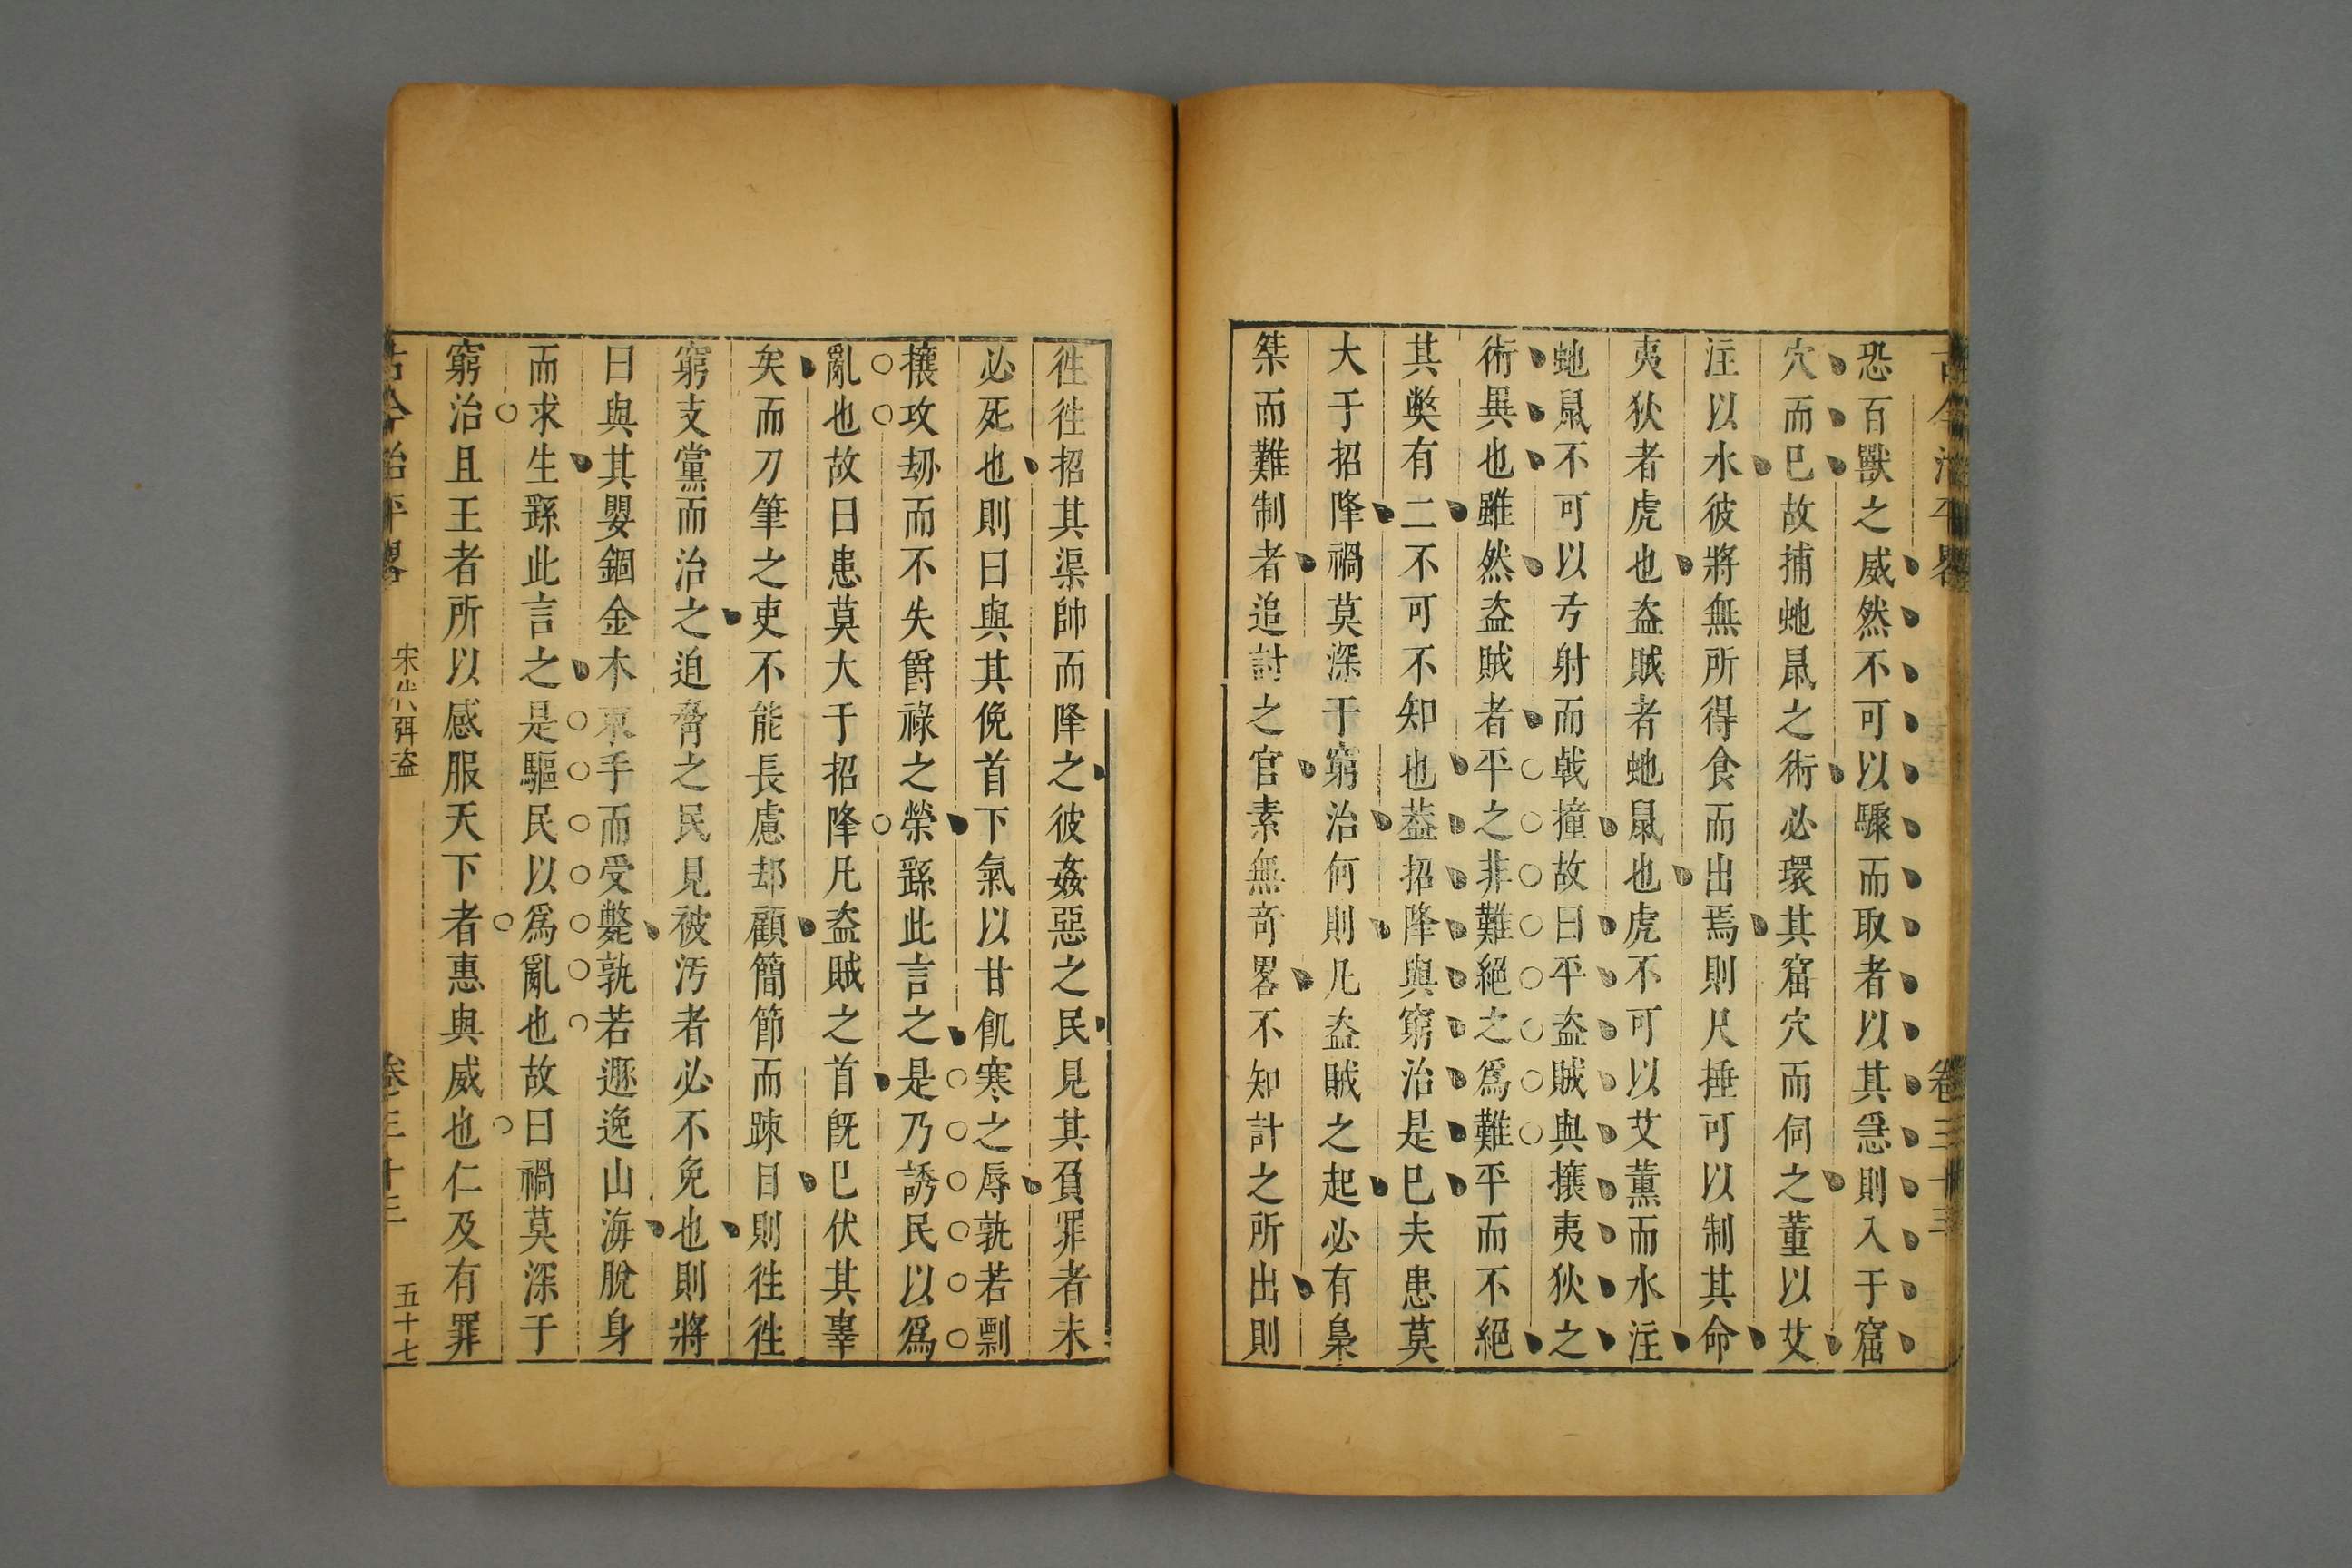 古今治平畧 卷三十三
恐百獸之威然不可以驟而取者以其急則入于窟
穴而巳故捕虵鼠之術必環其窟穴而伺之薰以艾
注以水彼將無所得食而出焉則尺捶可以制其命
夷狄者虎也盗賊者虵鼠也虎不可以艾薰而水注
虵鼠不可以弓射而戟撞故曰平盗賊與攘夷狄之
術異也雖然盗賊者平之非難絕之爲難平而不絕
其獘有二不可不知也葢招降與窮治是巳夫患莫
大于招降禍莫深于窮治何則凡盗賊之起必有梟
桀而難制者追討之官素無奇畧不知計之所出則
徃徃招其渠帥而降之彼姦惡之民見其負罪者未
必死也則曰與其俛首下氣以甘飢寒之辱孰若剽
攘攻刼而不失爵祿之榮繇此言之是乃誘民以爲
亂也故曰患莫大于招降凡盗賊之首旣巳伏其辜
矣而刀筆之吏不能長慮却顧簡節而踈目則徃徃
窮支黨而治之迫脅之民見被汚者必不免也則將
曰與其嬰錮金木束手而受斃孰若遯逸山海脫身
而求生繇此言之是驅民以爲亂也故曰禍莫深于
窮治且王者所以感服天下者惠與威也仁及有罪
古今治平畧 宋 弭盗 卷三十三 五十七